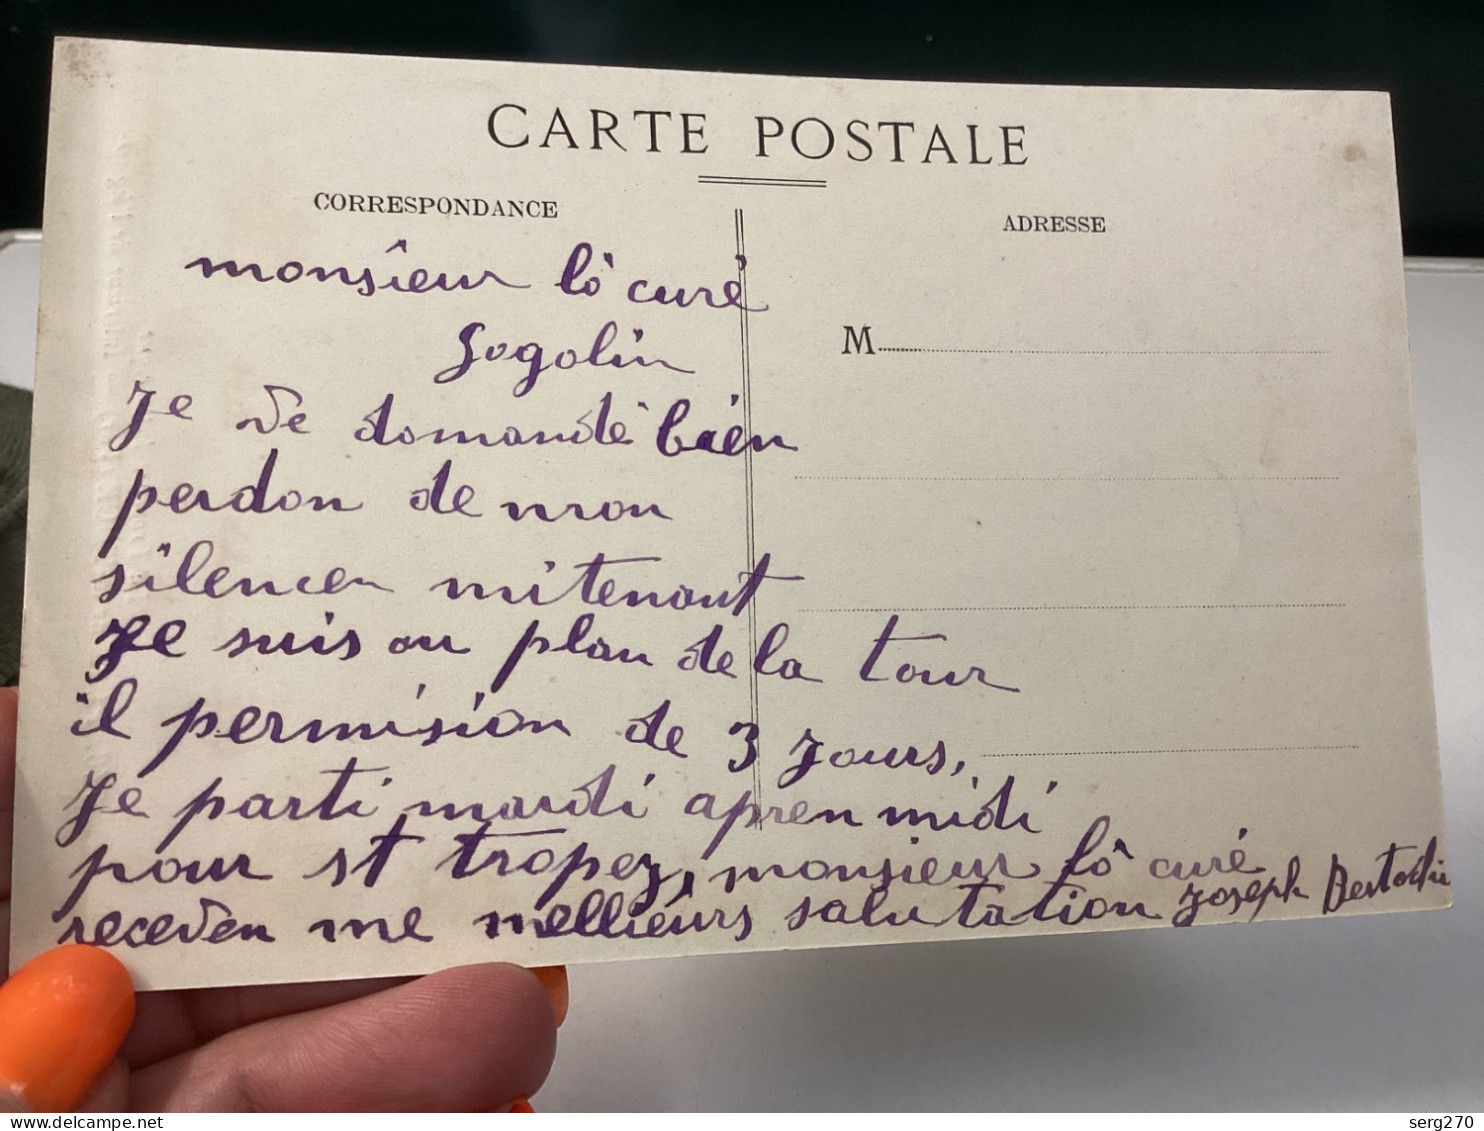 CARTE POSTALE
CORRESPONDANCE
ADRESSE
M
monsieur lô curé
Gogolin
Je ve domande bien
perdon de mon
silencen mitenant
Je suis au plan de la tour
il permision de 3 jours,
Je parti mardi apren midi
pour st tropez, monsieur lô curé
receven me mellieurs salutation Joseph
delcampe.net
serg270